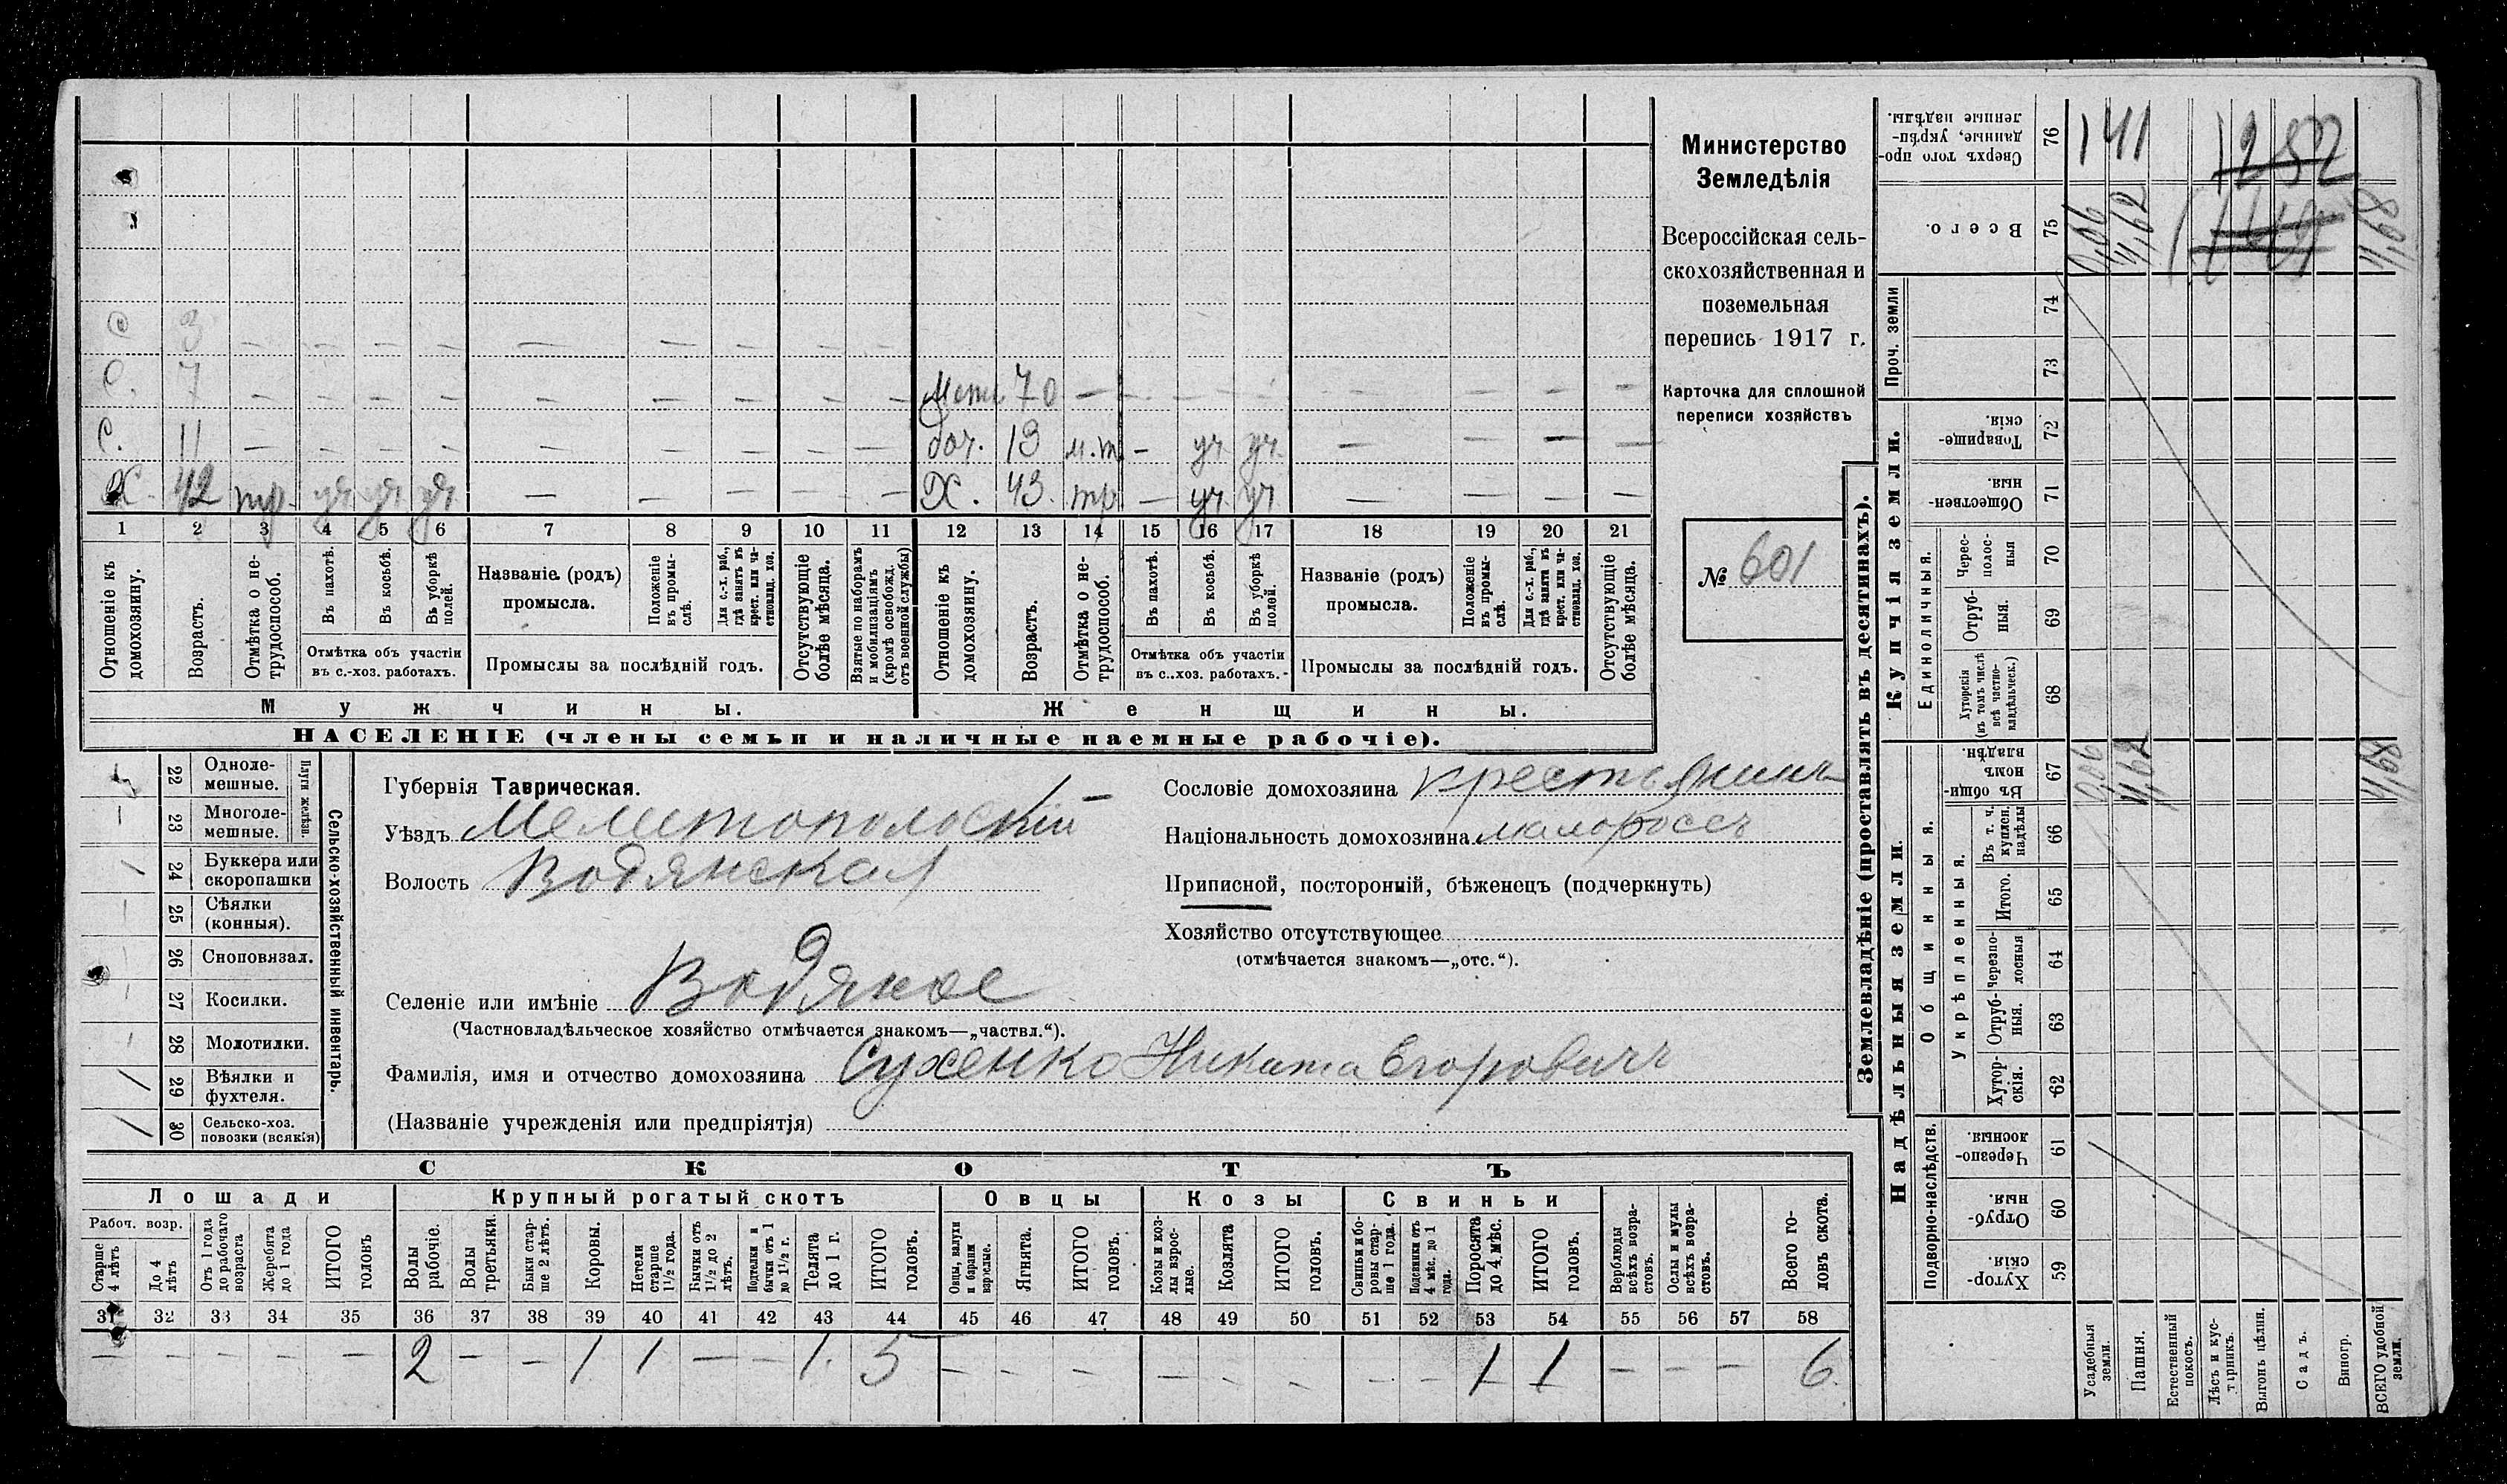 с 3 — — — — — — — — —
С. 7 — — — — — — — — — Мать 70 — — — — — — — —
С. 11 — — — — — — — — — доч. 13 м.т. — уч. уч. — — — —
Х. 42 тр. уч. уч. уч. — — — — — Х. 43 тр. — уч. уч. — — — —
1 2 3 4 5 6 7 8 9 10 11 12 13 14 15 16 17 18 19 20 21
Отношеніе къ домохозяину.
Возрастъ.
Отмѣтка о не-
трудоспособ.
Въ пахотѣ.
Въ косьбѣ.
Въ уборкѣ полей.
Отмѣтка объ участіи
въ с.-хоз. работахъ.
Названіе (родъ)
промысла.
Положеніе въ промы-
слѣ.
Для с.-х. раб.,
гдѣ занятъ въ
крест. или ча-
стновлад. хоз.
Промыслы за послѣдній годъ.
Отсутствующіе
болѣе мѣсяца.
Взятые по наборамъ
и мобилизаціямъ
(кромѣ освобожд.
отъ военной службы)
Отношеніе къ
домохозяину.
Возрастъ.
Отмѣтка о не-
трудоспособ.
Въ пахотѣ.
Въ косьбѣ.
Въ уборкѣ
полей.
Отмѣтка объ участіи
въ с..хоз. работахъ.
Названіе (родъ)
промысла.
Положеніе
въ промы-
слѣ.
Для с.-х. раб.,
гдѣ занята въ
крест. или ча-
стновлад. хоз.
Промыслы за послѣдній годъ.
Отсутствующіе
болѣе мѣсяца.
Мужчины.
Женщины.
НАСЕЛЕНІЕ (члены семьи и наличные наемные рабочіе).
Министерство
Земледѣлія
Всероссійская сель-
скохозяйственная и
поземельная
перепись 1917 г.
Карточка для сплошной
переписи хозяйствъ
№ 601
22 Одноле-
мешные.
— 23 Многоле-
мешные.
Плуги желѣзн.
1 24 Буккера или
скоропашки
— 25 Сѣялки
(конныя).
— 26 Сноповязал.
— 27 Косилки.
— 28 Молотилки.
1 29 Вѣялки и
фухтеля.
1 30 Сельско-хоз.
повозки (всякія)
Сельско-хозяйственный инвентарь.
Губернія Таврическая.
Уѣздъ Мелитопольскій
Волость Водянская
Селеніе или имѣніе Водяное
(Частновладѣльческое хозяйство отмѣчается знакомъ—„частвл.“).
Фамилія, имя и отчество домохозяина Сухенко Никита Егоровичъ
(Названіе учрежденія или предпріятія)
Сословіе домохозяина крестьянинъ
Національность домохозяина малороссъ
Приписной, посторонній, бѣженецъ (подчеркнуть)
Хозяйство отсутствующее
(отмѣчается знакомъ—„отс.“).
СКОТЪ
Лошади
Крупный рогатый скотъ
Овцы
Козы
Свиньи
Рабоч. возр.
Старше
4 лѣтъ
До 4
лѣтъ
Отъ 1 года
до рабочаго
возраста
Жеребята
до 1 года
ИТОГО
головъ
Волы
рабочіе.
Волы
третьяки.
Быки стар-
ше 2 лѣтъ.
Коровы.
Нетели
старше
1½ года.
Бычки отъ
1½ до 2
лѣтъ.
Подтелки и
бычки отъ 1
до 1½ г.
Телята
до 1 г.
ИТОГО
головъ.
Овцы, валухи
и бараны
взрослые.
Ягнята.
ИТОГО
головъ.
Козы и коз-
лы взрос-
лые.
Козлята
ИТОГО
головъ.
Свиньи и бо-
ровы стар-
ше 1 года.
Подсвинки отъ
4 мѣс. до 1
года.
Поросята
до 4 мѣс.
ИТОГО
головъ.
Верблюды
всѣхъ возра-
стовъ.
Ослы и мулы
всѣхъ возра-
стовъ.
Всего го-
ловъ скота.
31 32 33 34 35 36 37 38 39 40 41 42 43 44 45 46 47 48 49 50 51 52 53 54 55 56 57 58
— — — — — 2 — — 1 1 — — 1 5 — — — — — — — — 1 1 — — — 6
Землевладѣніе (проставлять въ десятинахъ).
Купчія земли.
Надѣльныя земли.
Сверхъ того про-
данные, укрѣп-
ленные надѣлы.
76
141
1252
Всего.
75
0,06
11,62
11,68
Проч. земли
74
73
Товарище-
скія.
72
Обществен-
ныя.
71
Единоличныя.
Черес-
полос-
ныя
70
Отруб-
ныя.
69
Хуторскія
(въ томъ числѣ
всѣ частно-
владѣльческ.)
68
Общинныя.
Въ общи-
номъ
владѣн.
67
0,06
11,62
11,68
Укрѣпленныя.
Въ т. ч.
куплен.
надѣлы
66
Итого.
65
черезпо-
лосныя
64
Отруб-
ныя.
63
Хутор-
скія.
62
Подворно-наслѣдств.
Черезпо-
лосныя.
61
Отруб-
ныя.
60
Хутор-
скія.
59
Усадебныя
земли.
Пашня.
Естественный
покосъ.
Лѣсъ и кус-
тарникъ.
Выгонъ цѣлин.
Садъ.
Виногр.
ВСЕГО удобной
земли.